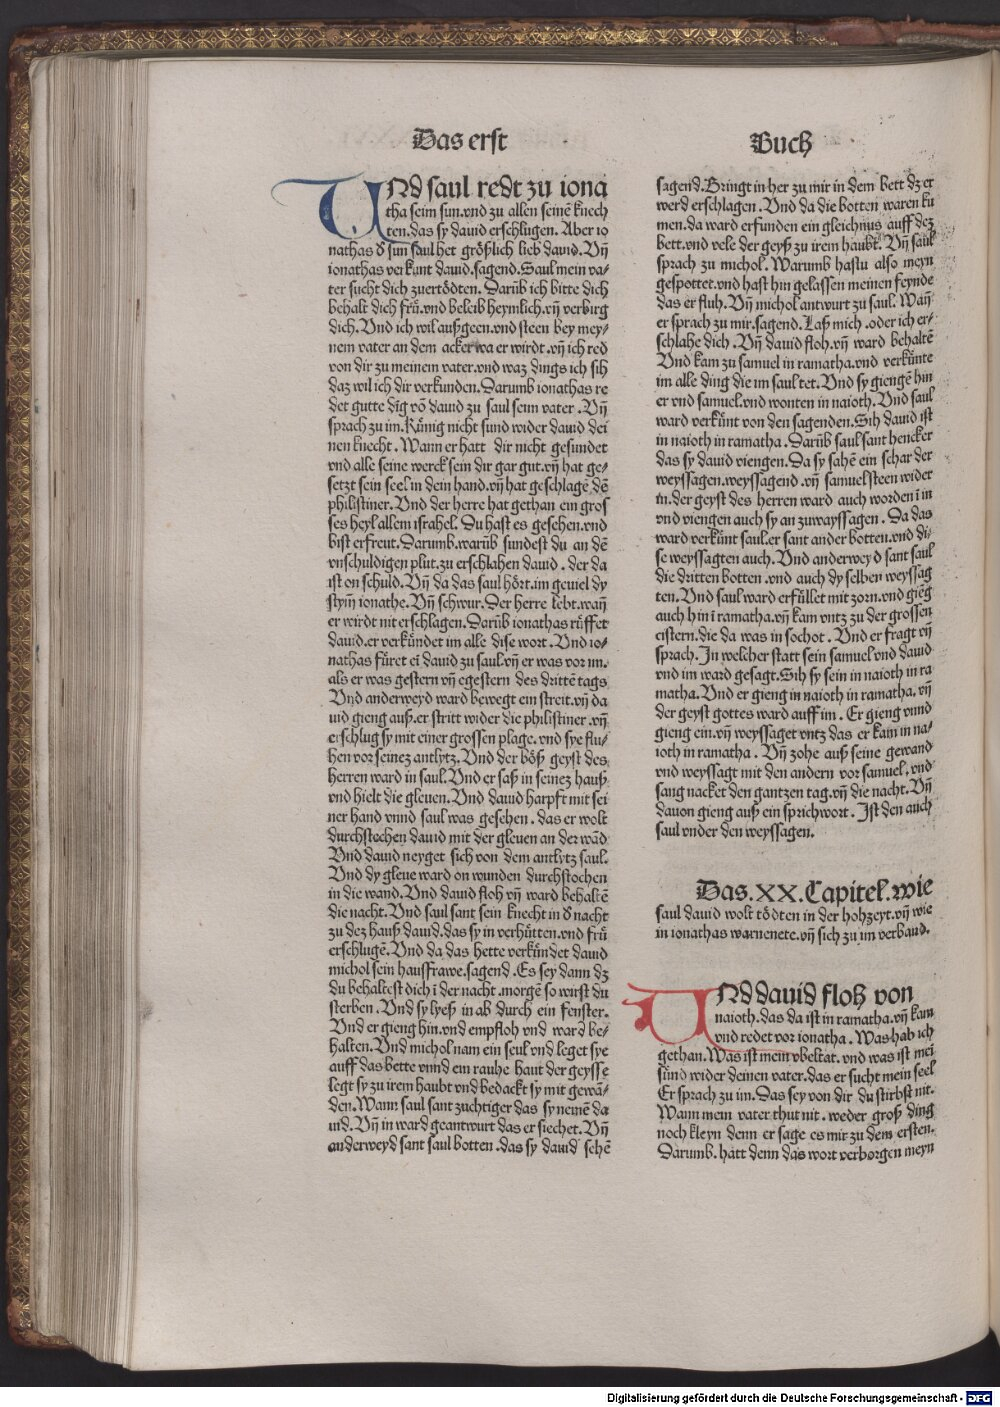 Das erst
Buch
UNd saul redt zu iona
tha seim sun.vnd zu allen seinē knech
ten.das sy dauid erschlugen. Aber io
nathas d̕ sun saul het größlich lieb dauid. Vn̄
ionathas verkunt dauid.sagend.Saul mein va⸗
ter sucht dich zuertödten. Darūb ich bitte dich
behalt dich frü.vnd beleib heymlich.vn̄ verbirg
dich. Vnd ich wil außgeen.vnd steen bey mey⸗
nem vater an dem acker wa er wirdt.vn̄ ich red
von dir zu meinem vater.vnd waz dings ich sih
daz wil ich dir verkunden. Darumb ionathas re
det gutte dīg vō dauid zu saul seim vater. Vn̄
sprach zu im. Künig nicht sund wider dauid dei
nen knecht. Wann er hatt dir nicht gesundet
vnd alle seine werck sein dir gar gut.vn̄ hat ge⸗
setzt sein seel in dein hand.vn̄ hat geschlagē dē
philistiner. Vnd der herre hat gethan ein gros
ses heyl allem israhel. Du hast es gesehen.vnd
bist erfreut. Darumb.warūb sundest du an dē
vnschuldigen plut.zu erschlahen dauid. der da
ist on schuld. Vn̄ da das saul hört.im geuiel dy
stym̄ ionathe. Vn̄ schwur. Der herre lebt.wan̄
er wirdt nit erschlagen. Darūb ionathas rüffet
dauid.er verkündet im alle dise wort. Vnd io⸗
nathas füret eī dauid zu saul.vn̄ er was vor im.
als er was gestern vn̄ egestern des drittē tags
Vnd anderweyd ward bewegt ein streit.vn̄ da
uid gieng auß.er stritt wider die philistiner.vn̄
erschlug sy mit einer grossen plage.vnd sye flu⸗
hen vor seinez antlytz. Vnd der böß geyst des
herren ward in saul. Vnd er saß in seinez hauß
vnd hielt die gleuen. Vnd dauid harpft mit sei
ner hand vnnd saul was gesehen. das er wolt
durchstechen dauid mit der gleuen an der wād
Vnd dauid neyget sich von dem antlytz saul.
Vnd dy gleue ward on wunden durchstochen
in die wand. Vnd dauid floh vn̄ ward behaltē
die nacht. Vnd saul sant sein knecht in d̕ nacht
zu dez hauß dauid.das sy in verhütten.vnd frü
erschlugē. Vnd da das hette verkündet dauid
michol sein haussfrawe.sagend. Es sey dann dz
du behaltest dich ī der nacht.morgē so wirst du
sterben. Vnd sy lyeß in ab durch ein fenster.
Vnd er gieng hin.vnd empfloh vnd ward be⸗
halten. Vnd michol nam ein seul vnd leget sye
auff das bette vnnd ein rauhe haut der geysse
legt sy zu irem haubt vnd bedackt sy mit gewā⸗
den. Wann saul sant zuchtiger das sy nemē da
uid. Vn̄ in ward geantwurt das er siechet. Vn̄
anderweyd sant saul botten.das sy dauid sehē
sagend. Bringt in her zu mir in dem bett dz er
werd erschlagen. Vnd da die botten waren ku
men.da ward erfunden ein gleichnus auff dez
bett.vnd vele der geyß zu irem haubt. Vn̄ saul
sprach zu michol. Warumb hastu also meyn
gespottet.vnd hast hin gelassen meinen feynde
das er fluh. Vn̄ michol antwurt zu saul. Wan̄
er sprach zu mir.sagend. Laß mich.oder ich er⸗
schlahe dich. Vn̄ dauid floh.vn̄ ward behaltē
Vnd kam zu samuel in ramatha.vnd verkünte
im alle ding die im saul tet. Vnd sy giengē hin
er vnd samuel.vnd wonten in naioth. Vnd saul
ward verkünt von den sagenden. Sih dauid ist
in naioth in ramatha. Darūb saul sant hencker
das sy dauid viengen. Da sy sahē ein schar der
weyssagen.weyssagend.vn̄ samuel steen wider
in.der geyst des herren ward auch worden ī in
vnd viengen auch sy an zuwayssagen. Da das
ward verkünt saul.er sant ander botten.vnd di⸗
se weyssagten auch. Vnd anderweyd sant saul
die dritten botten.vnd auch dy selben weyssag
ten. Vnd saul ward erfüllet mit zorn.vnd gieg
auch hin ī ramatha.vn̄ kam vntz zu der grossen
cistern.die da was in sochot. Vnd er fragt vn̄
sprach. In welcher statt sein samuel vnd dauid
vnd im ward gesagt. Sih sy sein in naioth in ra
matha. Vnd er gieng in naioth in ramatha.vn̄
der geyst gottes ward auff im. Er gieng vnnd
gieng ein.vn̄ weyssaget vntz das er kam in na⸗
ioth in ramatha. Vn̄ zohe auß seine gewand
vnd weyssagt mit den andern vor samuel.vnd
sang nacket den gantzen tag.vn̄ die nacht. Vn̄
dauon gieng auß ein sprichwort. Ist den auch
saul vnder den weyssagen.
Das.XX.Capitel.wie
saul dauid wolt tödten in der hohzeyt.vn̄ wie
in ionathas warnenete.vn̄ sich zu im verband.
UNd dauid floh von
naioth.das da ist in ramatha.vn̄ kam
vnd redet vor ionatha. Was hab ich
gethan. Was ist mein vbeltat.vnd was ist mei
sünd wider deinen vater.das er sucht mein seel
Er sprach zu im. Das sey von dir du stirbst nit.
Wann mein vater thut nit.weder groß ding
noch kleyn denn er sage es mir zu dem ersten.
Darumb.hatt denn das wort verborgen meyn
Digitalisierung gefördert durch die Deutsche Forschungsgemeinschaft - DFG